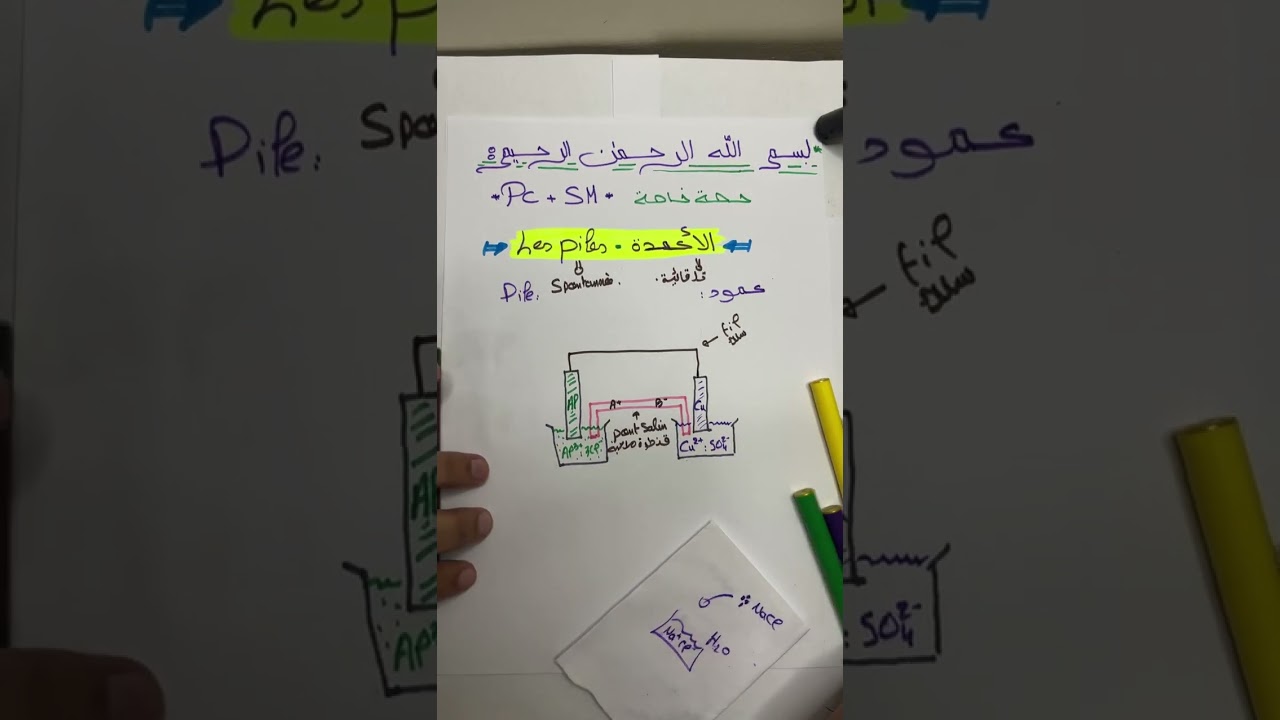 بسم الله الرحمان الرحيم:
* PC + SM * حصة خاصة
Les piles - الأعمدة
Spontannés. تلقائية.
Pile: عمود:
fil
سلك
Al Cu
A+ B-
pont salin
قنطرة ملحية
Al3+; 3Cl- Cu2+; SO4 2-
NaCl
H2O
Na+ Cl-